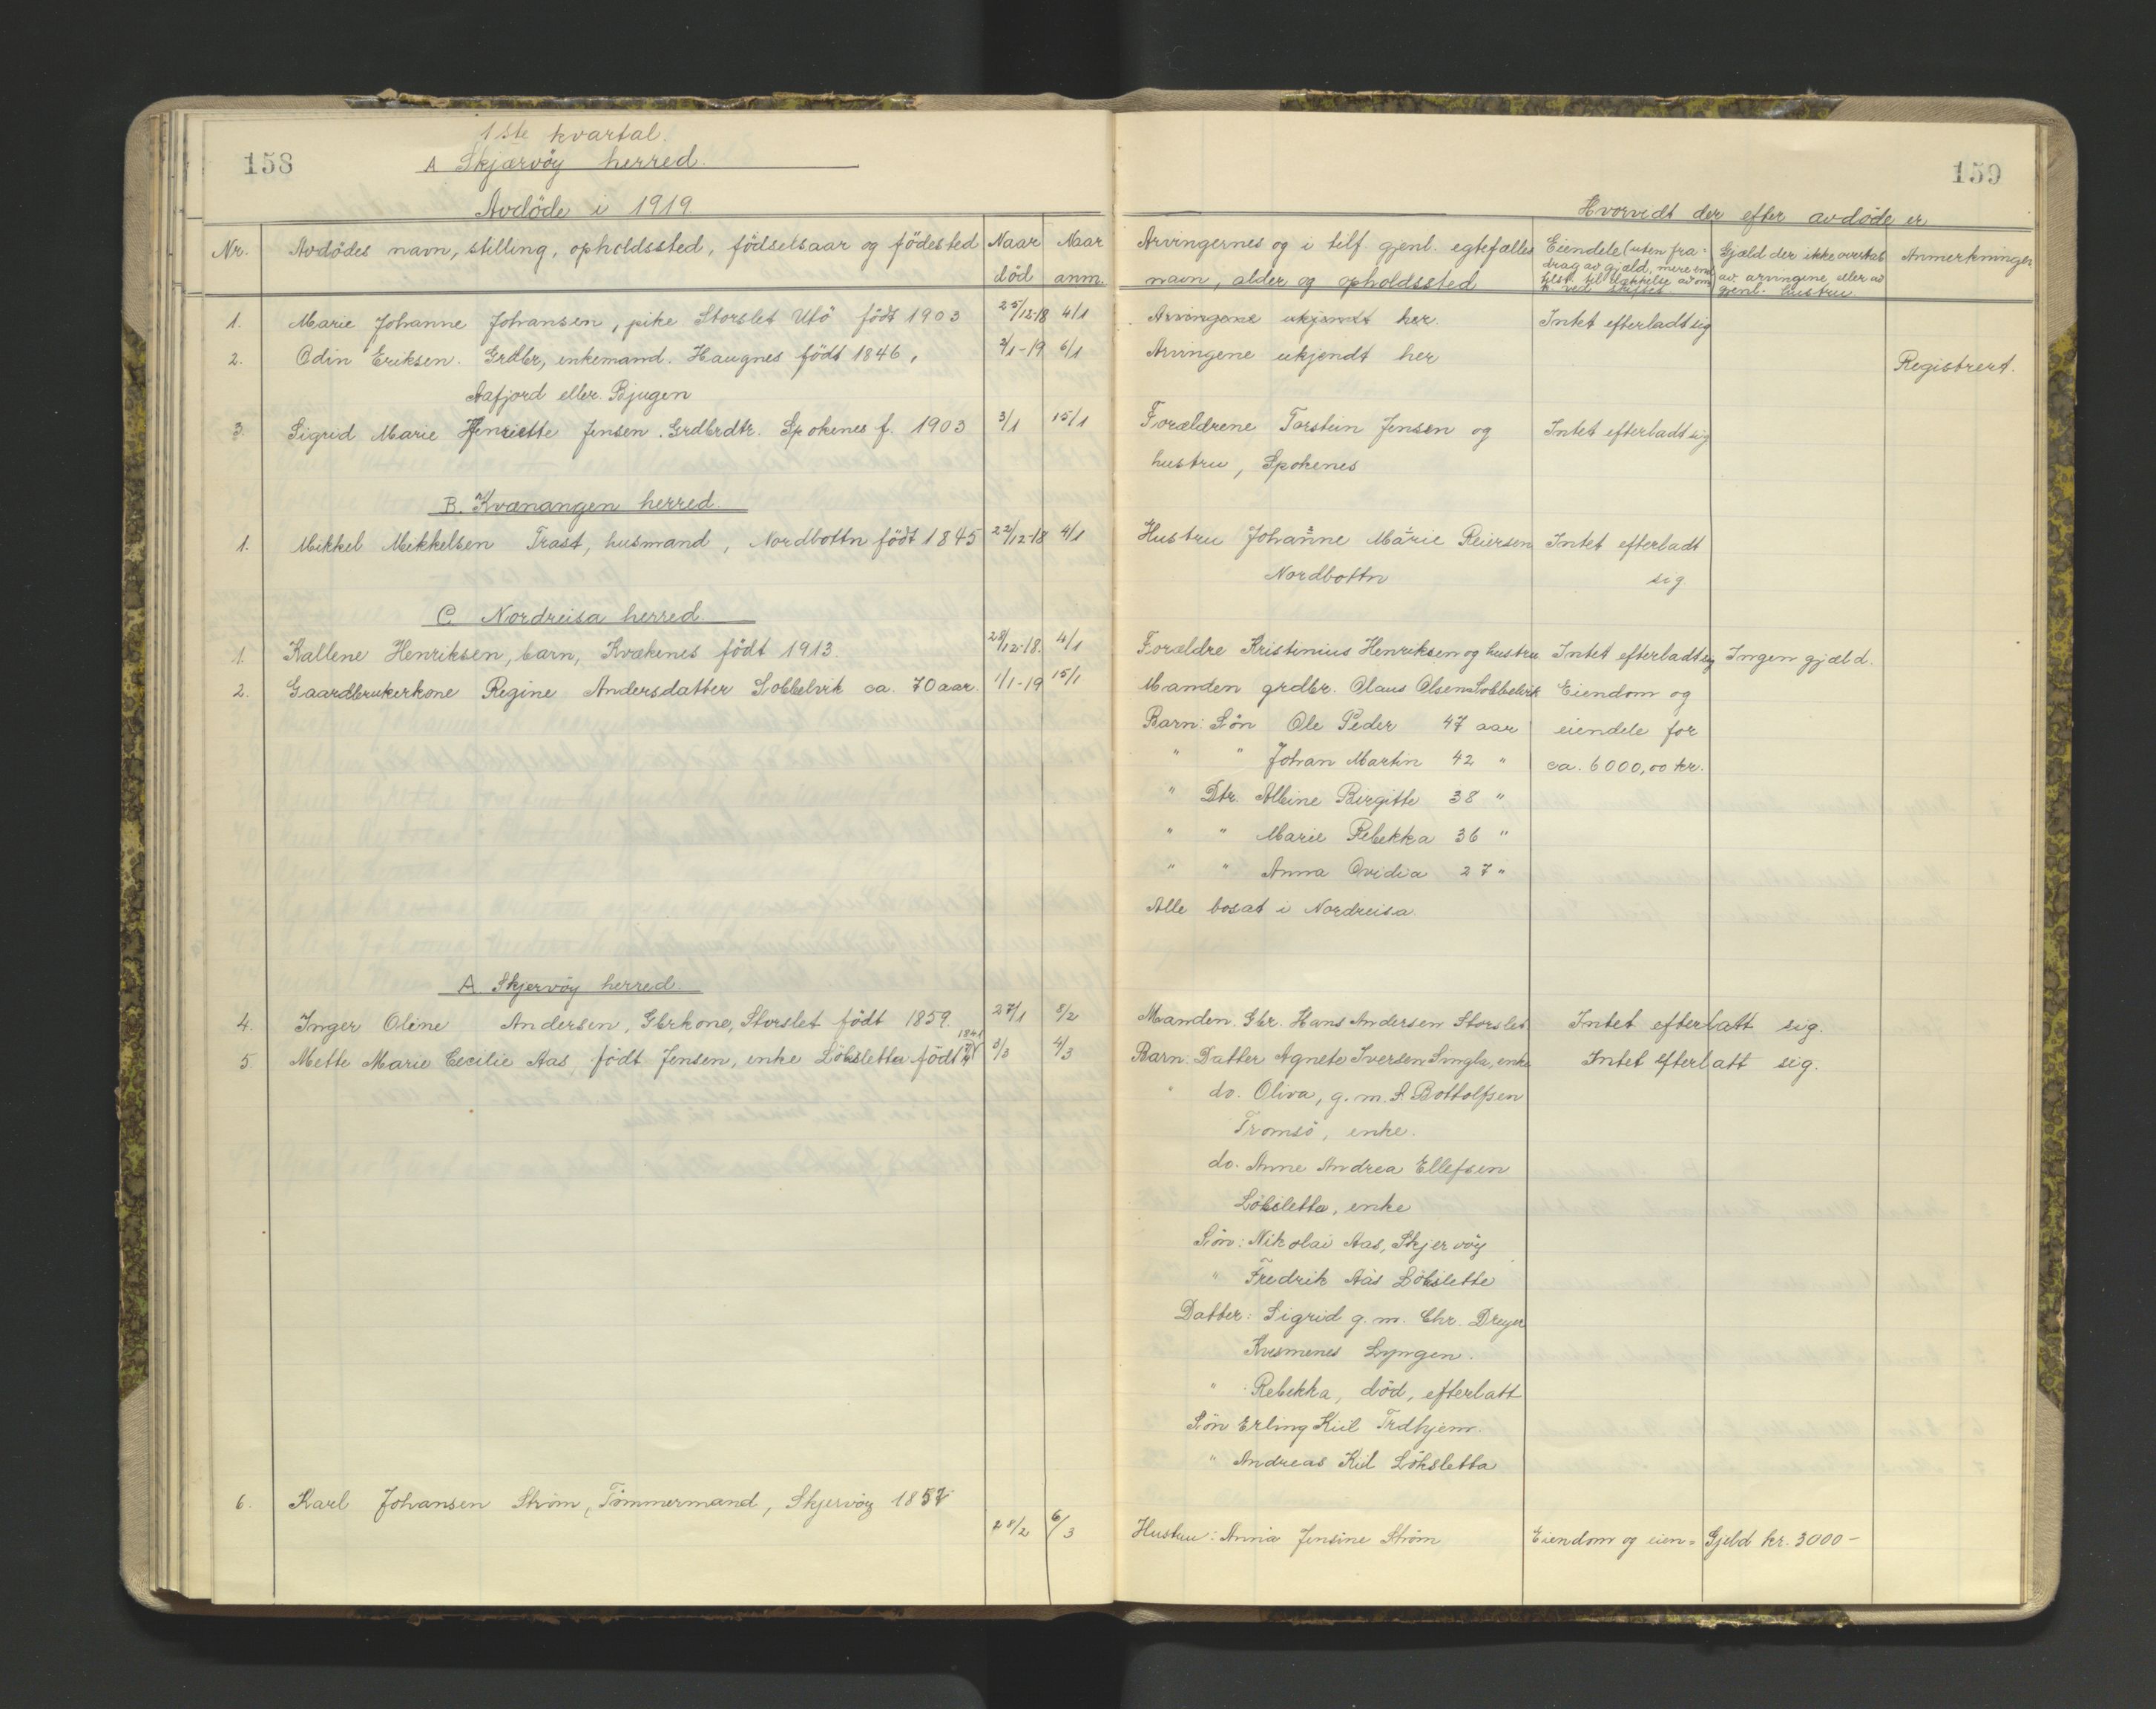 158
1ste kvartal.
A Skjærvøy herred.
Avdøde i 1919
Nr. Avdødes navn, stilling, opholdssted, fødselsaar og fødested Naar død Naar anm.
1. Marie Johanne Johansen, pike Storslet Utö født 1903 25/12-18 4/1
2. Odin Eriksen. Grdbr, enkemand. Haugnes født 1846, 2/1-19 6/1
Aafjord eller Bjugen
3. Sigrid Marie Henriette Jensen. Grdbrdtr. Spokenes f. 1903 3/1 15/1
B. Kvænangen herred.
1. Mikkel Mikkelsen Trast, husmand, Nordbottn født 1845 22/12-18 4/1
C. Nordreisa herred.
1. Kallene Henriksen, barn, Kvækenes født 1913. 28/12-18. 4/1
2. Gaardbrukerkone Regine Andersdatter Sobbelvik ca. 70 aar. 1/1-19 15/1
A Skjervøy herred.
4. Inger Oline Andersen, Gbrkone, Storslet født 1859. 27/1 8/2
5. Mette Marie Cecilie Aas, født Jensen, enke Löksletta født 1841 3/3 4/3
6. Karl Johansen Strøm, Tømmermand, Skjervøy 1857
28/2 6/3
159
Hvorvidt der efter avdøde er
Arvingernes og i tilf. gjenl. egtefælles
navn, alder og opholdssted
Eiendele (uten fra-
drag av gjæld, mere end
tilst. til dækkelse av om
k. ved skiftes
Gjæld der ikke overtas
av arvingene eller av
gjenl. hustru
Anmerkninger
Arvingene ukjendt her. Intet efterladt sig
Arvingene ukjendt her
Registrert.
Forældrene Torstein Jensen og Intet efterladt sig
hustru, Spokenes
Hustru Johanne Marie Reiersen Intet efterladt
Nordbottn sig
Forældre Kristinius Henriksen og hustru Intet efterladt sig Ingen gjæld.
Manden grdbr. Olaus Olsen Sobbelvik Eiendom og
Barn: Søn Ole Peder 47 aar eiendele for
" " Johan Martin 42 " ca. 6000,00 kr.
" Dtr. Albine Birgitte 38 "
" " Marie Rebekka 36 "
" " Anna Ovidia 27 "
Alle bosat i Nordreisa.
Manden. Gbr. Hans Andersen Storslet Intet efterlatt sig.
Barn: Datter Agnete Iversen Singla, enke Intet efterlatt sig.
" do. Oliva, g. m. S. Bottolfsen
Tromsö, enke.
do. Anne Andrea Ellefsen
Löksletta, enke
Søn: Nikolai Aas, Skjervøy
" Fredrik Aas Lökslette
Datter: Sigrid g. m. Chr. Dreyer
Kvesmenes Lyngen.
" Rebekka, død, efterlatt
Søn Erling Kiil Trdhjem.
" Andreas Kiil Löksletta
Hustru: Anna Jensine Strøm Eiendom og eien= Gjeld kr. 3000-